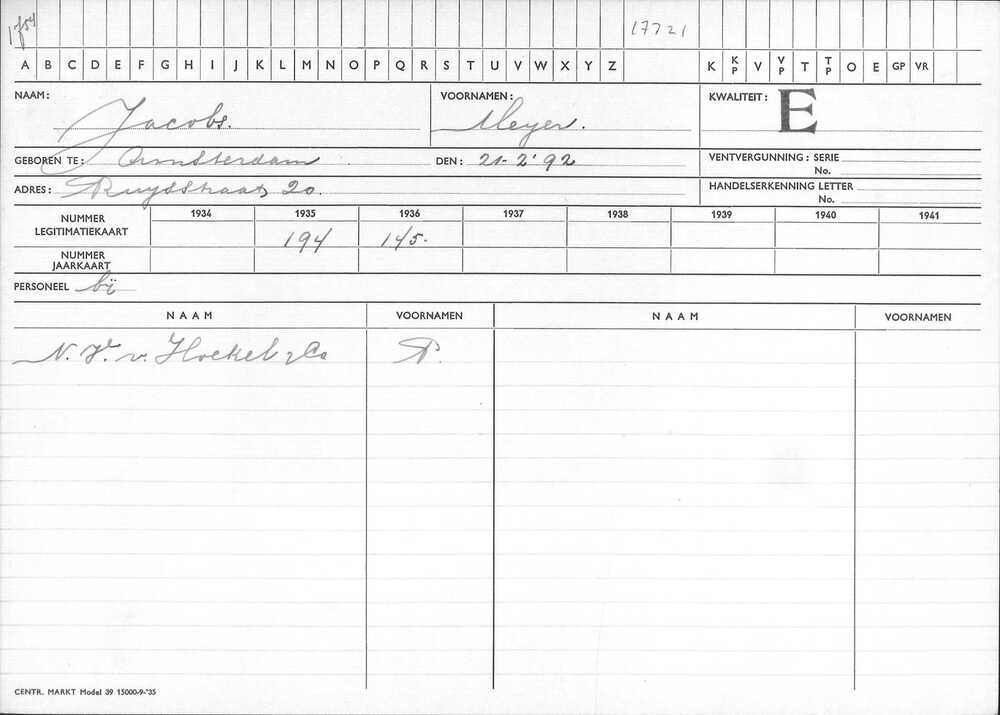 1754 17721
A B C D E F G H I J K L M N O P Q R S T U V W X Y Z K KP V VP T TP O E GP VR
NAAM: Jacobs. VOORNAMEN: Meyer. KWALITEIT: E
GEBOREN TE: Amsterdam DEN: 21-2'92 VENTVERGUNNING: SERIE
No.
ADRES: Ruyschstraat 20. HANDELSERKENNING LETTER
No.
1934 1935 1936 1937 1938 1939 1940 1941
NUMMER LEGITIMATIEKAART 194 145.
NUMMER JAARKAART
PERSONEEL bij
NAAM VOORNAMEN NAAM VOORNAMEN
N.V. v. Hoekel & Co P.
CENTR. MARKT Model 39 15000-9-'35